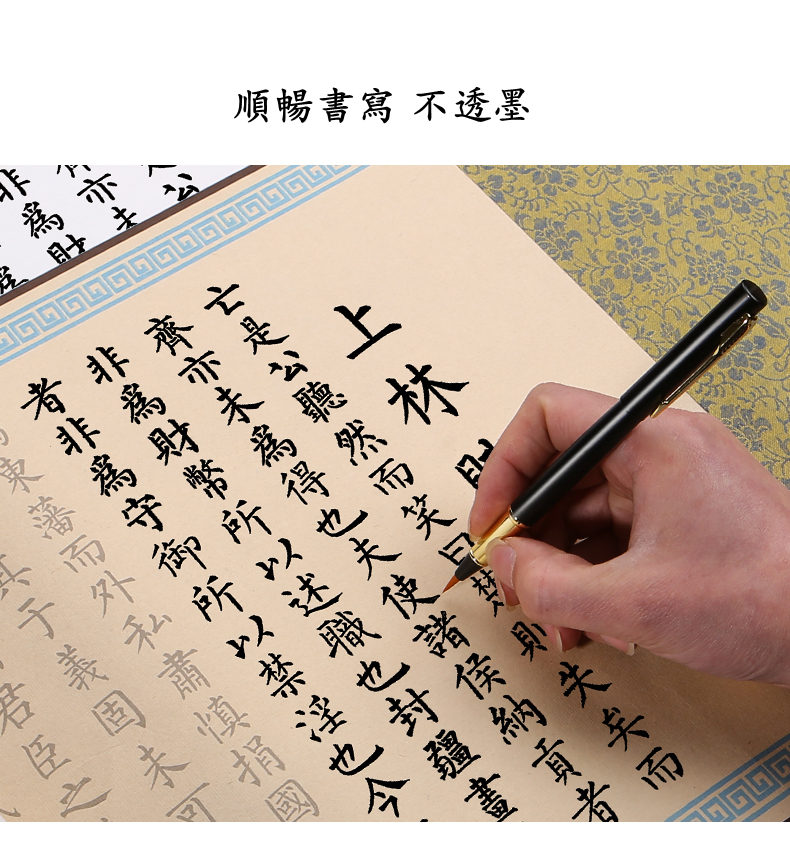 順暢書寫 不透墨
公
亦未
非為財
上林
亡是公聽然而笑曰楚則失矣而
齊亦未為得也夫使諸侯納貢者
非為財幣所以述職也封疆畫
者非為守御所以禁淫也今
東藩而外私肅慎捐國
其于義固未可
君臣之